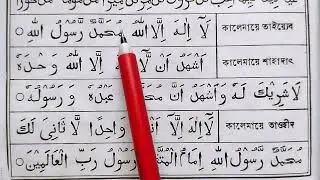 لَآ اِلٰهَ اِلَّا اللّٰهُ مُحَمَّدٌ رَّسُوْلُ اللّٰهِ ○ কালেমায়ে তাইয়্যেব
اَشْهَدُ اَنْ لَّآ اِلٰهَ اِلَّا اللّٰهُ وَحْدَهٗ কালেমায়ে শাহাদাৎ
لَا شَرِيْكَ لَهٗ وَاَشْهَدُ اَنَّ عَبْدُهٗ وَ رَسُوْلُهٗ
لَآ اِلٰهَ اِلَّآ وَاحِدًا لَّا ثَانِيَ لَكَ কালেমায়ে তাওহীদ
مُحَمَّدٌ رَّسُوْلُ اللّٰهِ اِمَامُ رَسُوْلُ رَبِّ الْعَالَمِيْنَ ○